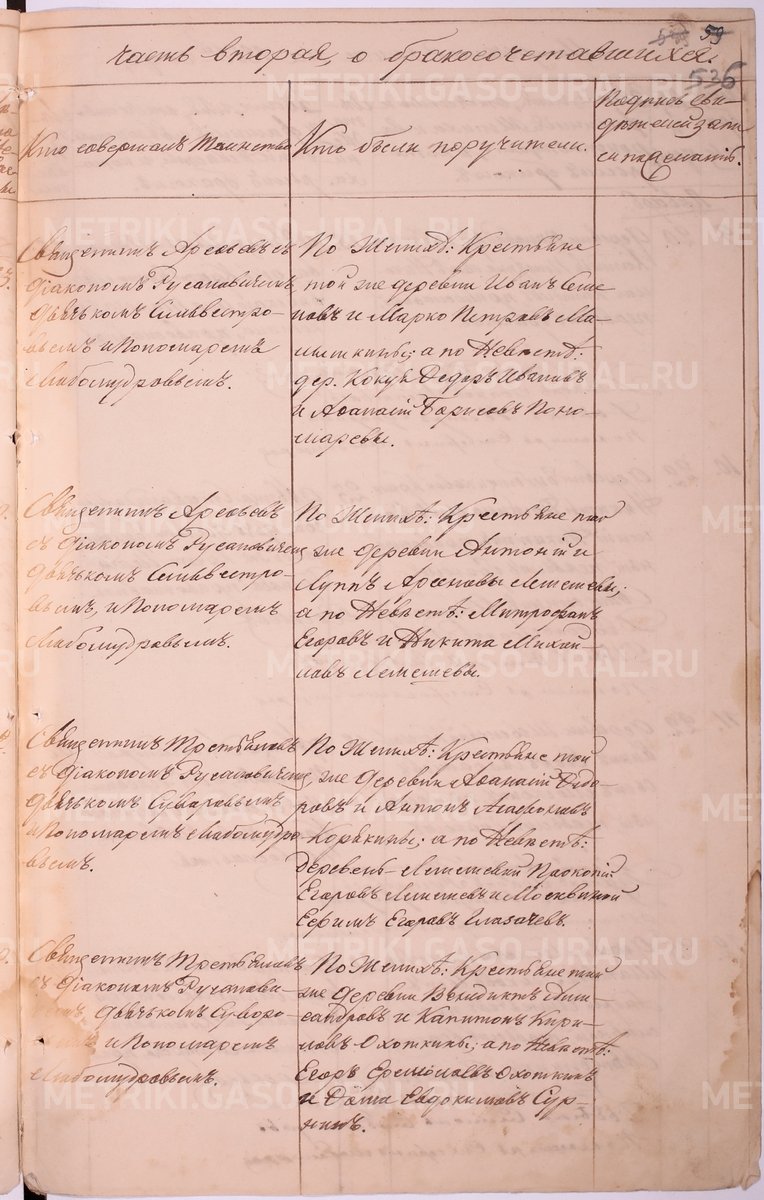 59
526
часть вторая, о бракосочетавшихся.
Кто совершалъ Таинство
Кто были поручители.
Подпись сви-
дѣтелей запи
си по желанію.
Священникъ Арефьевъ съ
Діакономъ Русановичемъ
Дьячкомъ Сильвестро-
вымъ и Пономаремъ
Любомудровымъ.
По Женихѣ: Крестьяне
той же деревни Иванъ Семе
новъ и Марко Петровъ Ма-
мышкины; а по Невѣстѣ:
дер. Кокуя Ѳедоръ Ивановъ
и Аѳанасій Борисовъ Поно-
маревы.
Священникъ Арефьевъ
съ Діакономъ Русановичемъ
Дьячкомъ Сильвестро-
вымъ, и Пономаремъ
Любомудровымъ.
По Женихѣ: Крестьяне той
же деревни Антоній и
Луппъ Арсеновы Лемешевы;
а по Невѣстѣ: Митрофанъ
Егоровъ и Никита Михай-
ловъ Лемешевы.
Священникъ Третьяковъ
съ Діакономъ Русановичемъ
Дьячкомъ Суворовымъ
и Пономаремъ Любомудро-
вымъ.
По Женихѣ: Крестьяне той
же деревни Аѳанасій Ѳедо-
ровъ и Антонъ Агафоновъ
Корякины; а по Невѣстѣ:
деревень Лемешевой Прокопій
Егоровъ Лемешевъ и Москвиной
Ефимъ Егоровъ Глазачевъ.
Священникъ Третьяковъ
съ Діакономъ Русанови-
чемъ, Дьячкомъ Суворо-
вымъ и Пономаремъ
Любомудровымъ.
По Женихѣ: Крестьяне той
же деревни Венидиктъ Али-
сандровъ и Капитонъ Кири-
ловъ Охоткины; а по Невѣстѣ:
Егоръ Ермолаевъ Охоткинъ
и Ѳома Евдокимовъ Сур-
нинъ.
METRIKI.GASO-URAL.RU